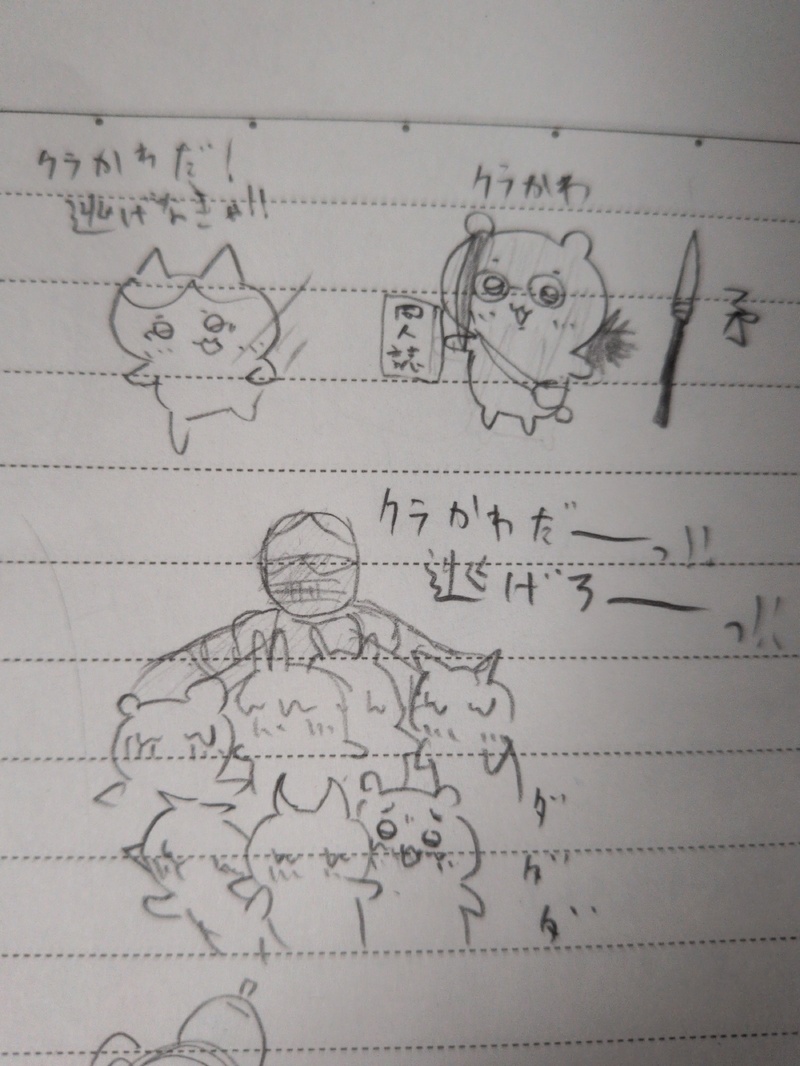 クラかわだ!
逃げなきゃ!!
クラかわ
同人誌
矛
クラかわだーーっ!!
逃げろーーっ!!
ダ
ダ
ダ